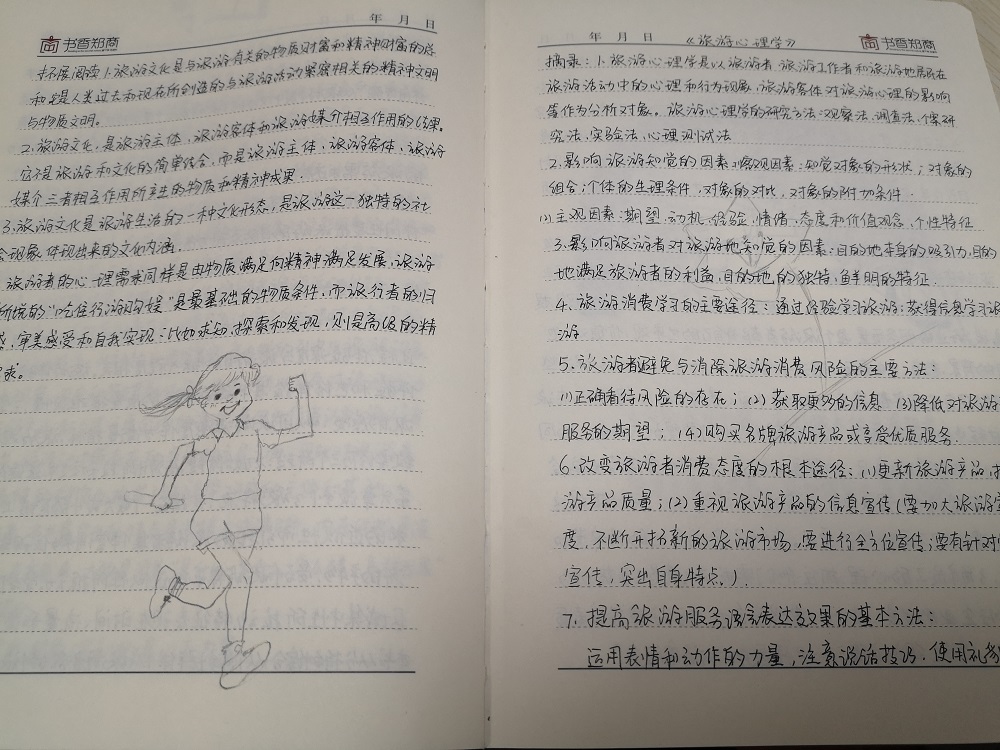 年 月 日
书香知商
拓展阅读1.旅游文化是与旅游有关的物质财富和精神财富的总
和,是人类过去和现在所创造的与旅游活动紧密相关的精神文明
与物质文明。
2.旅游文化,是旅游主体,旅游客体和旅游媒介相互作用的成果。
它不是旅游和文化的简单结合,而是旅游主体、旅游客体、旅游
媒介三者相互作用所产生的物质和精神成果.
3.旅游文化是旅游生活的一种文化形态,是旅游这一独特的社
会现象体现出来的文化内涵.
旅游者的心理需求同样是由物质满足向精神满足发展,旅游
所统的“吃住行游购娱”是最基础的物质条件,而旅行者的归
感,审美感受和自我实现:比如求知,探索和发现,则是高级的精
求。
年 月 日
《旅游心理学》
书香知商
摘录:1.旅游心理学是以旅游者 旅游工作者和旅游地居民在
旅游活动中的心理和行为现象,旅游客体对旅游心理的影响
等作为分析对象。旅游心理学的研究方法:观察法,调查法,个案研
究法,实验法,心理测试法
2.影响旅游知觉的因素:客观因素:知觉对象的形状;对象的
组合;个体的生理条件,对象的对比,对象的附加条件.
(2)主观因素:期望、动机、经验、情绪、态度和价值观念、个性特征
3.影响旅游者对旅游地知觉的因素:目的地本身的吸引力,目的
地满足旅游者的利益,目的地的独特,鲜明的特征.
4.旅游消费学习的主要途径:通过经验学习旅游:获得信息学习旅
游
5.旅游者避免与消除旅游消费风险的主要方法:
(1)正确看待风险的存在;(2)获取更多的信息 (3)降低对旅游
服务的期望;(4)购买名牌旅游产品或享受优质服务.
6.改变旅游者消费态度的根本途径:(1)更新旅游产品,
游产品质量;(2)重视旅游产品的信息宣传(要加大旅游宣
度,不断开拓新的旅游市场,要进行全方位宣传;要有针对
宣传,突出自身特点.).
7.提高旅游服务语言表达效果的基本方法:
运用表情和动作的力量,注意说话技巧.使用礼貌